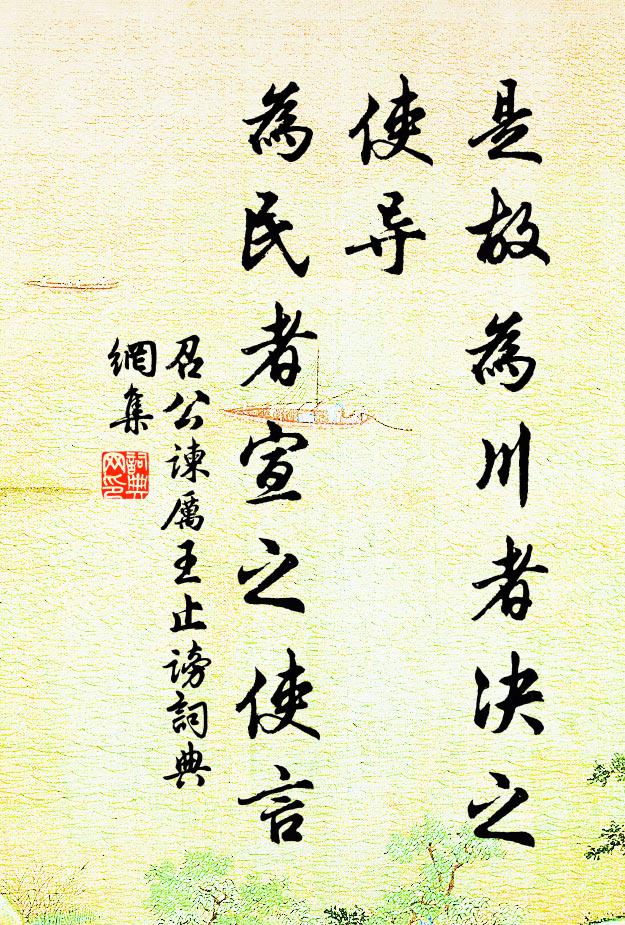 是故為川者决之
使导
為民者宣之使言
召公諫厲王止謗詞典
網集
詞典
网印